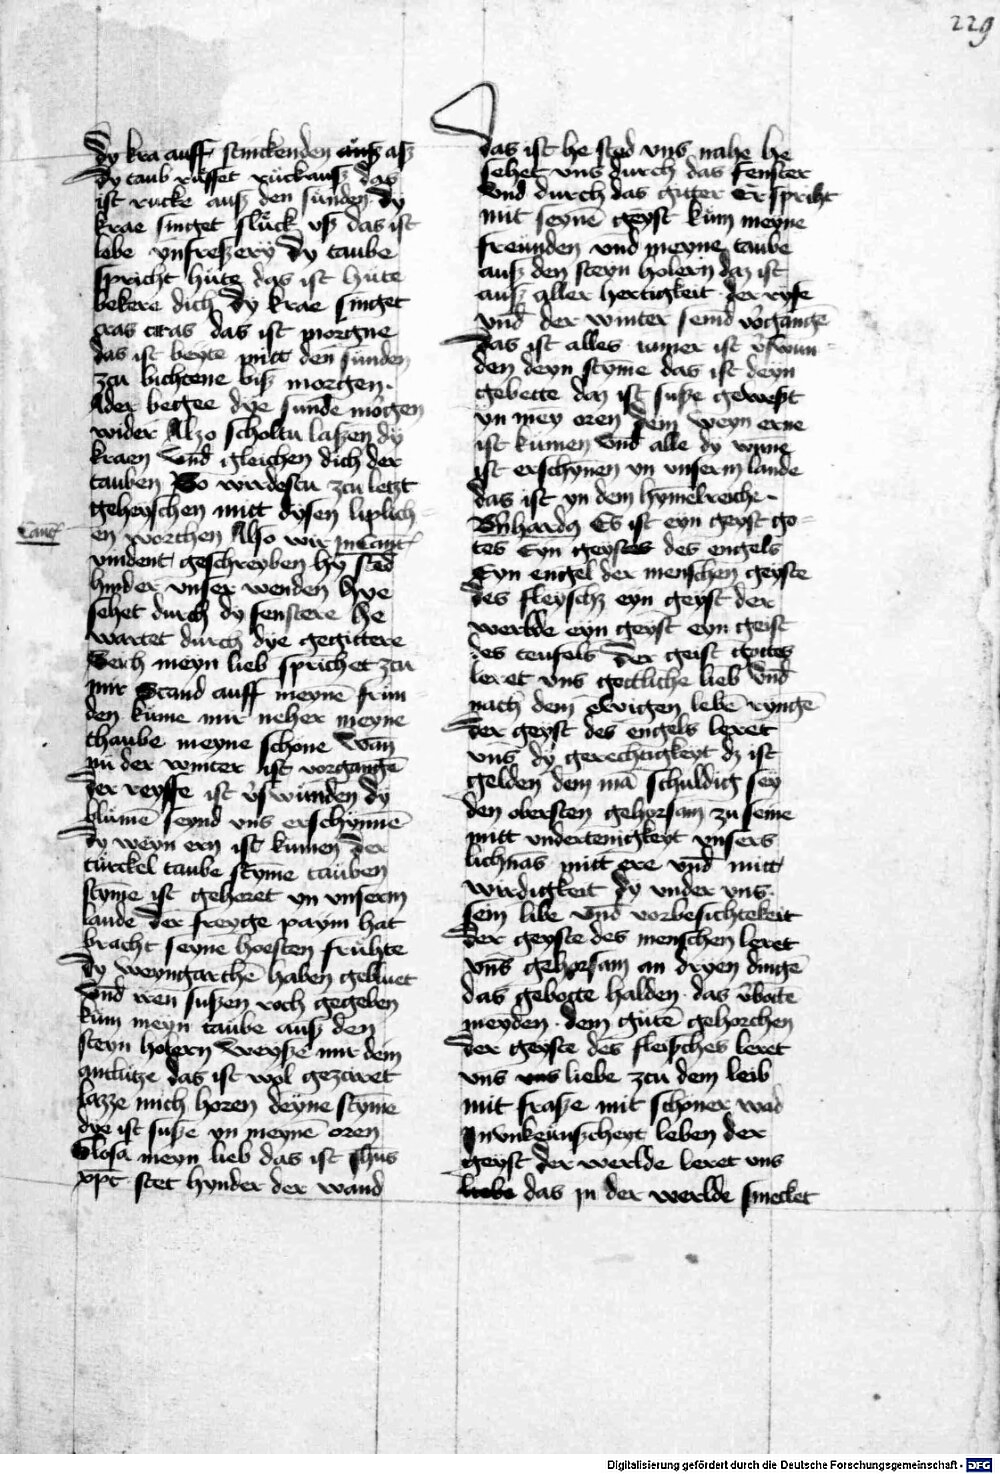 229
dy kra auff stinckenden auß aß
dy taub ruffet ruckauß das
ist rucke auß den sunden dy
krae singet sluck uß das ist
lebe yn freßery dy taube
spricht hute das ist hute
bekere dich dy krae singet
cras cras das ist morgne
das ist beyte mitt den sunden
zcu bichtene biß morgen.
Ader begee dye sunde morgen
wider Alzo scholtu laßen dy
kraen vnd gleichen dich der
tauben So wirdestu zcu letzt
geheyschen mitt dysen liplich=
en worchen Also wir in Cant
Cant
vindent geschreyben hy sted
hynder vnser wenden hye
sehet durch dy fenstere he
wartet durch dye gegittere
Sech meyn lieb sprichet zcu
mir Stand auff meyne frun=
den kume mir neher meyne
thaube meyne schone wan
nu der winter ist vorgangē
der reysse ist v̄swunden dy
blumē seynd vns erschynnē
dy weyn ern ist kumen der
turckel taube styme tauben
styme ist gehoret yn vnserm
lande der freyge paym hat
bracht seyne hoesten fruhte
dy weyngarthē haben gebluet
vnd iren sußen roch gegeben
kum meyn taube auß den
steyn holern weyße mir dem
antlutze das ist wol gezciret
lazze mich horen deyne styme
dye ist suße yn meynē oren
Glosa meyn lieb das ist ihūs
xp̄c stet hynder der wand
das ist he sted vns nahe he
sehet vns durch das fenster
vnd durch das guter Er spriht
mit seynē geyst kum meyne
freunden vnd meyne taube
auß den steyn holern daz ist
auß aller hertigkeit der ryfe
vnd der winter seind v̄gangē
das ist alles iamer ist v̄swun=
den deyn styme das ist deyn
gebette daz ist suße gewest
yn mey oren dem weyn erne
ist kumen vnd alle dy
ist erschynen yn vnserm lande
das ist yn dem hymelreiche.
Bn̄hardꝯ Es ist eyn geyst go=
tes Eyn geystes des engels
Eyn engel der menschen geyste
des fleyschz eyn geyst der
werlde eyn geyst eyn geist
des teufels der geist gottes
leret vns gottliche lieb vnd
nach dem ewigen lebē ryngē
der geyst des engels leret
vns dy gerechtigkeyt dz ist
gelden dem mā schuldig sey
den obersten gehorsam zu seine
mitt vndertenigkeyt vnsers
lichnās mitt ere vnd mitt
wirdigkeit dy vnder vns.
sein libe vnd vorbesichtekeit
der geyste des menschen leret
vns gehorsam an dryen dingē
das gebotte halden. das v̄botē
meyden. dem gutē gehorchen
der geyste des fleisches leret
vns vns liebe zcu dem leib
mit fraße mit schoner wad
In vnkeunscheyt leben der
geyst der werlde leret vns
liebe das in der werlde smecket
Digitalisierung gefördert durch die Deutsche Forschungsgemeinschaft - DFG